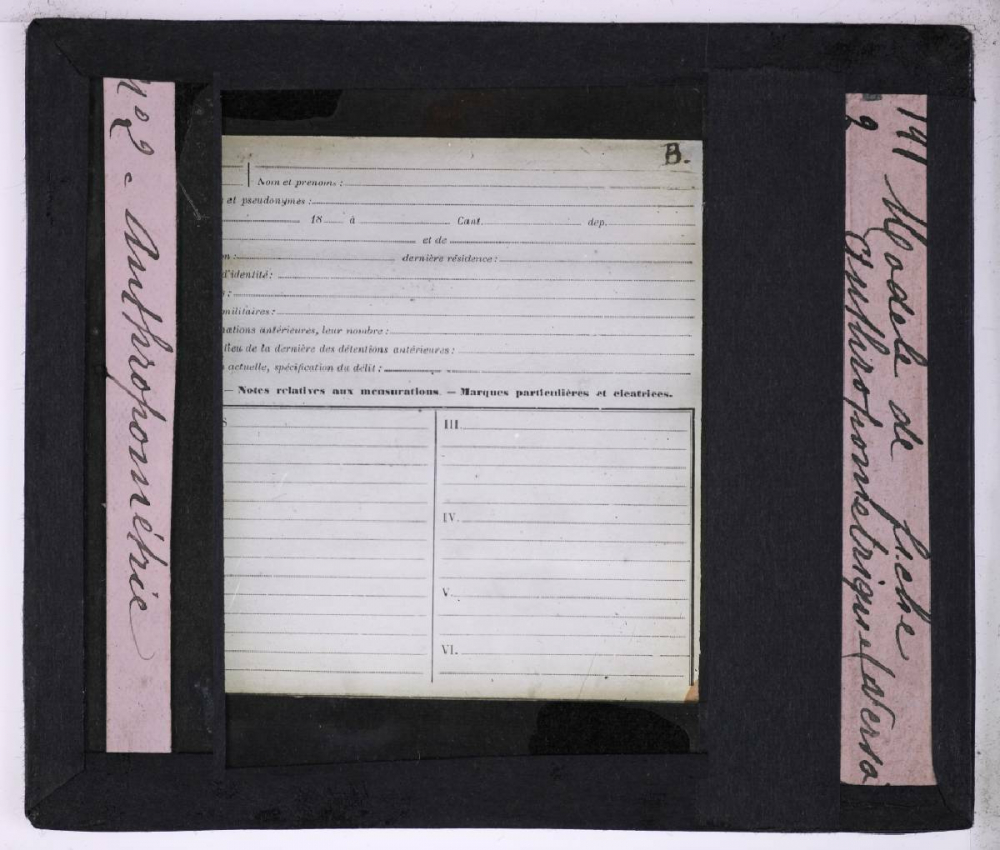 No 2 - Anthropométrie
B.
Nom et prenoms :
et pseudonymes :
18 à Cant. dep.
et de
n : dernière résidence :
d'identité :
:
militaires :
nations antérieures, leur nombre :
lieu de la dernière des détentions antérieures :
actuelle, spécification du délit :
— Notes relatives aux mensurations. — Marques particulières et cicatrices.
S
III.
IV.
V.
VI.
141 Modele de fiche
2 anthropometrique (Verso